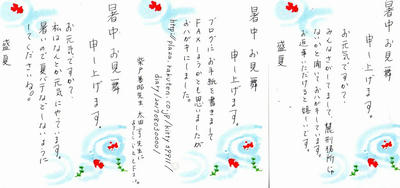 暑中お見舞
申し上げます。
お元気ですか?
みんなさがしてまして
ないかと聞いておハガキしています。
お返事いただけると嬉しいです。
盛夏
暑中お見舞
申し上げます。
ブログにお手紙を書きまして
FAXしようかとも思いましたが
おハガキにしました。
http://plaza.rakuten.co.jp/
diary/200708030000/
先生 太田 先生に
暑中お見舞
申し上げます。
お元気ですか?
私はなんとか元気にやっています。
暑いので夏バテなどしないように
してくださいね。
盛夏